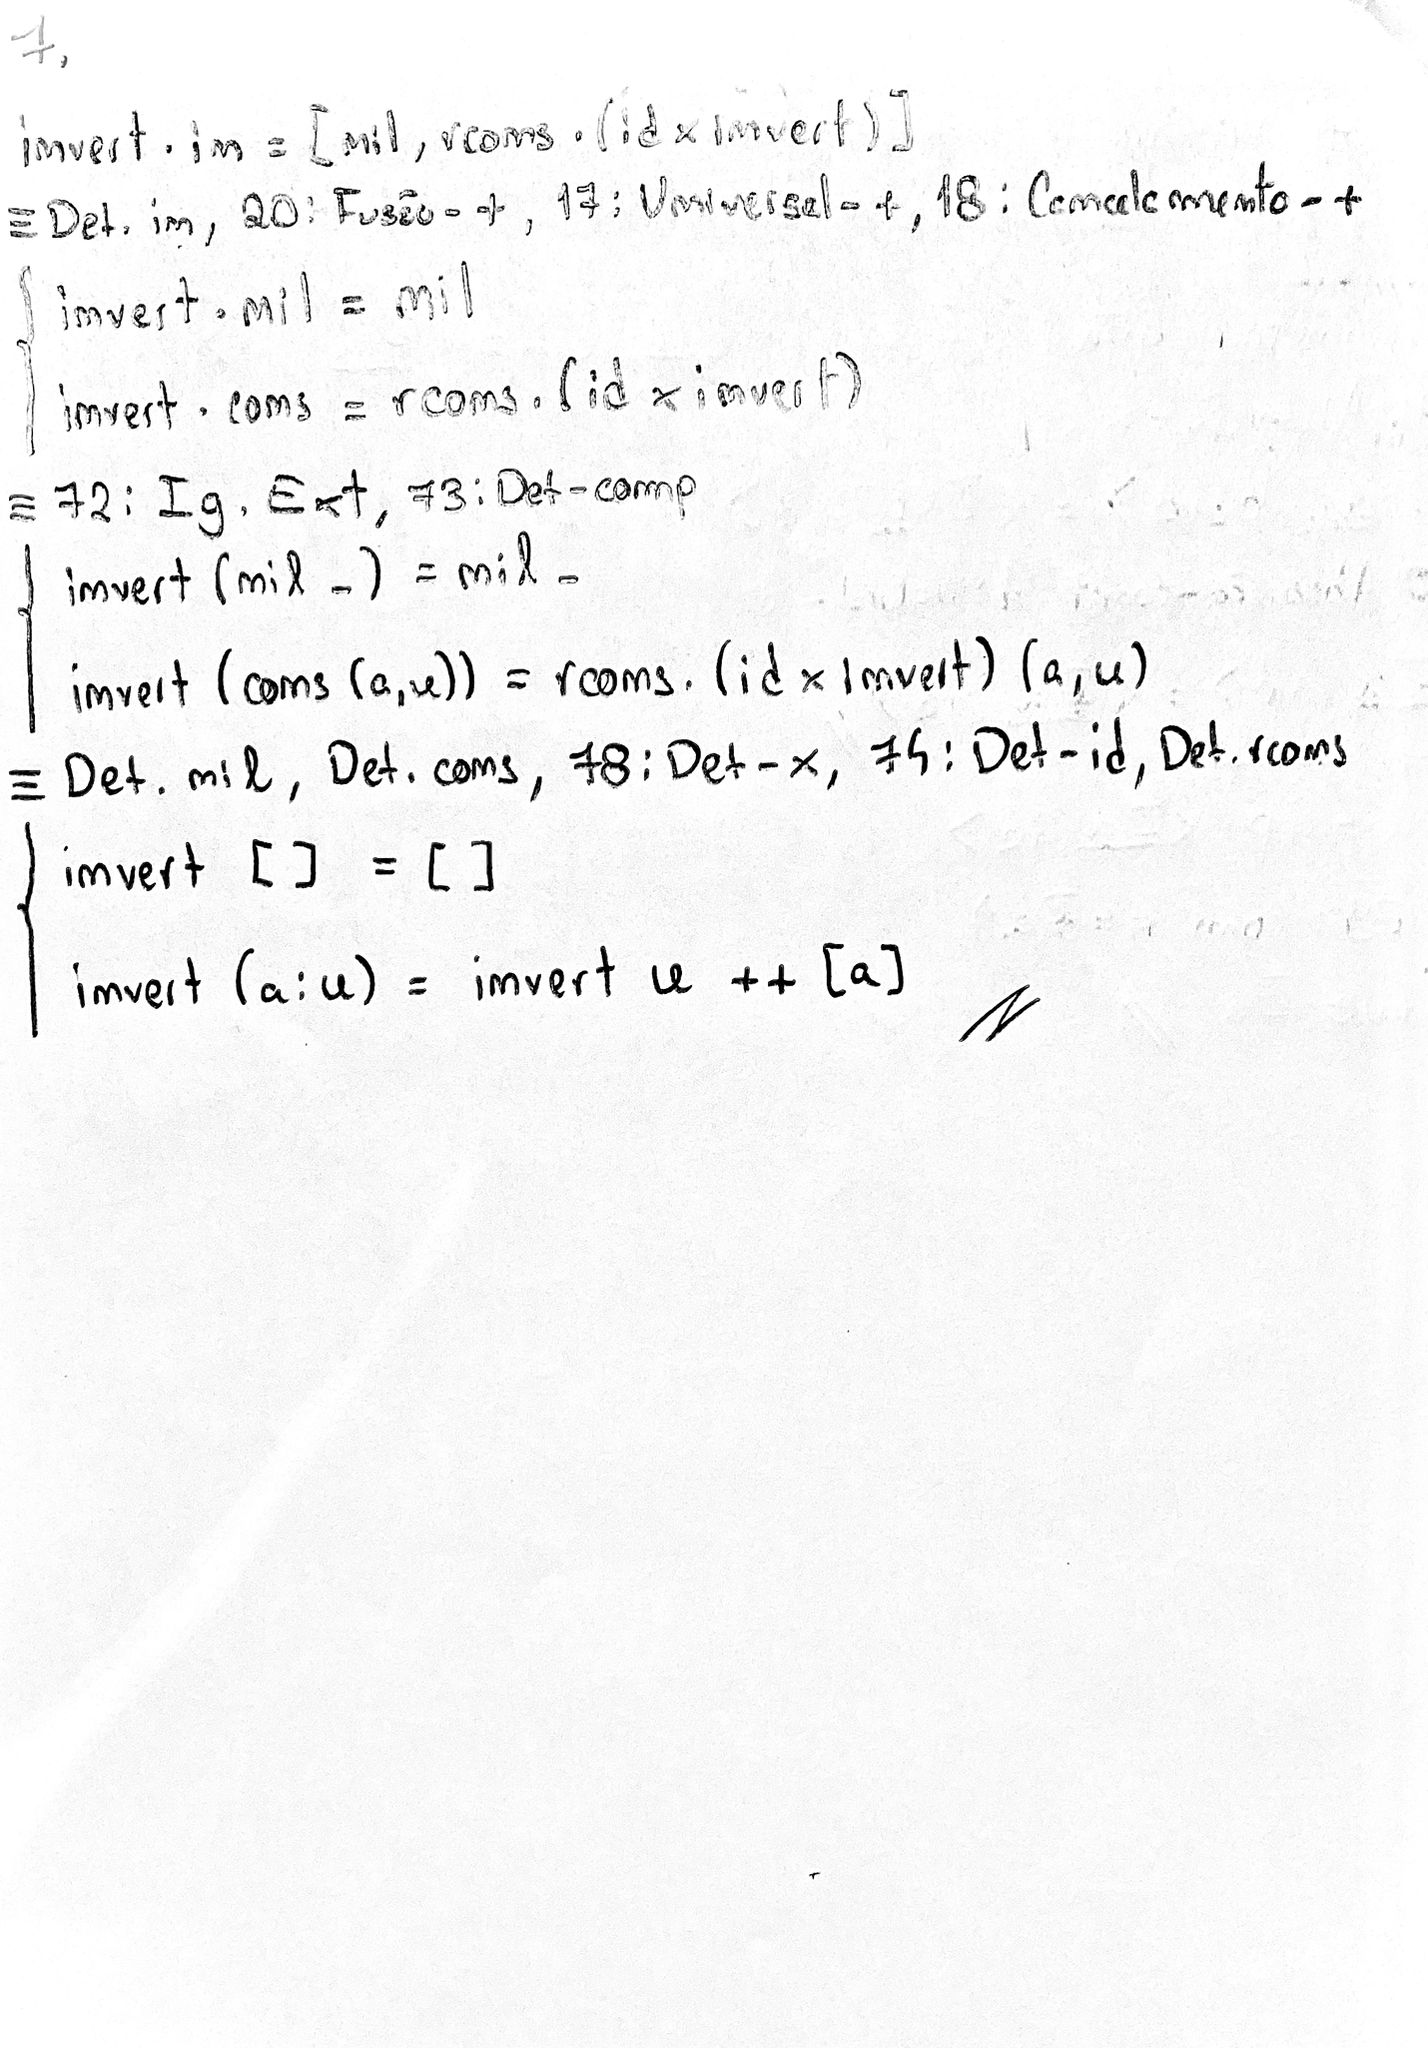 1,
invert . in = [nil, rcons . (id x invert)]
≡ Def. in, 20: Fusão-+, 17: Universal-+, 18: Cancelamento-+
{ invert . nil = nil
invert . cons = rcons . (id x invert)
≡ 72: Ig. Ext, 73: Def-comp
{ invert (nil _) = nil _
invert (cons (a,x)) = rcons . (id x invert) (a,x)
≡ Def. nil, Def. cons, 78: Def-x, 74: Def-id, Def. rcons
{ invert [] = []
invert (a:x) = invert x ++ [a]